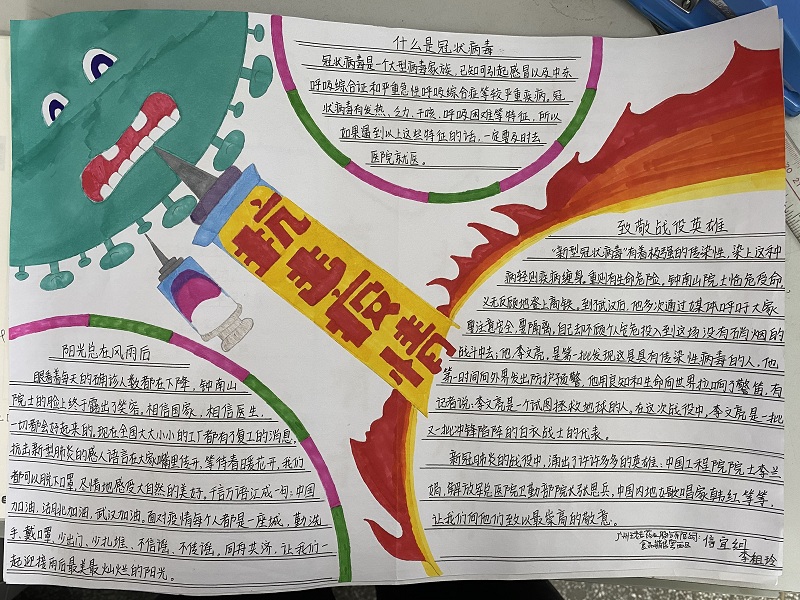 什么是冠状病毒
冠状病毒是一个大型病毒家族，已知可引起感冒以及中东
呼吸综合征和严重急性呼吸综合症等较严重疾病。冠
状病毒有发热、乏力、干咳、呼吸困难等特征，所以
如果遇到以上这些特征的话，一定要及时去
医院就医。
抗击疫情
致敬战役英雄
“新型冠状病毒”有着极强的传染性，染上这种
病轻则疾病缠身，重则有生命危险，钟南山院士临危受命
义无反顾地登上高铁，到武汉后，他多次通过媒体呼吁大家
要注意安全，要隔离，自己却不顾个人安危投入到这场没有硝烟的
战斗中去；他，李文亮，是第一批发现这具有传染性病毒的人，他
第一时间向外界发出防护预警，他用良知和生命向世界拉响了警笛，有
记者说：李文亮是一个试图拯救地球的人，在这次战役中，李文亮是一批
又一批冲锋陷阵的白衣战士的代表。
新冠肺炎的战役中，涌出了许许多多的英雄：中国工程院院士李兰
娟，解放军总医院卫勤部院大张思兵，中国内地女歌唱家韩红等等，
让我们向他们致以最崇高的敬意。
信宜组
李祖玲
阳光总在风雨后
眼看着每天的确诊人数都在下降，钟南山
院士的脸上终于露出了笑容，相信国家，相信医生，
一切都会好起来的。现在全国大大小小的工厂都有了复工的消息，
抗击新型肺炎的感人语言在大家嘴里传开，等待春暖花开，我们
都可以脱下口罩，尽情地感受大自然的美好。千言万语汇成一句：中国
加油，湖北加油，武汉加油，面对疫情每个人都是一座城，勤洗
手、戴口罩、少出门、少扎堆、不信谣、不传谣。同舟共济，让我们一
起迎接雨后最美最灿烂的阳光。